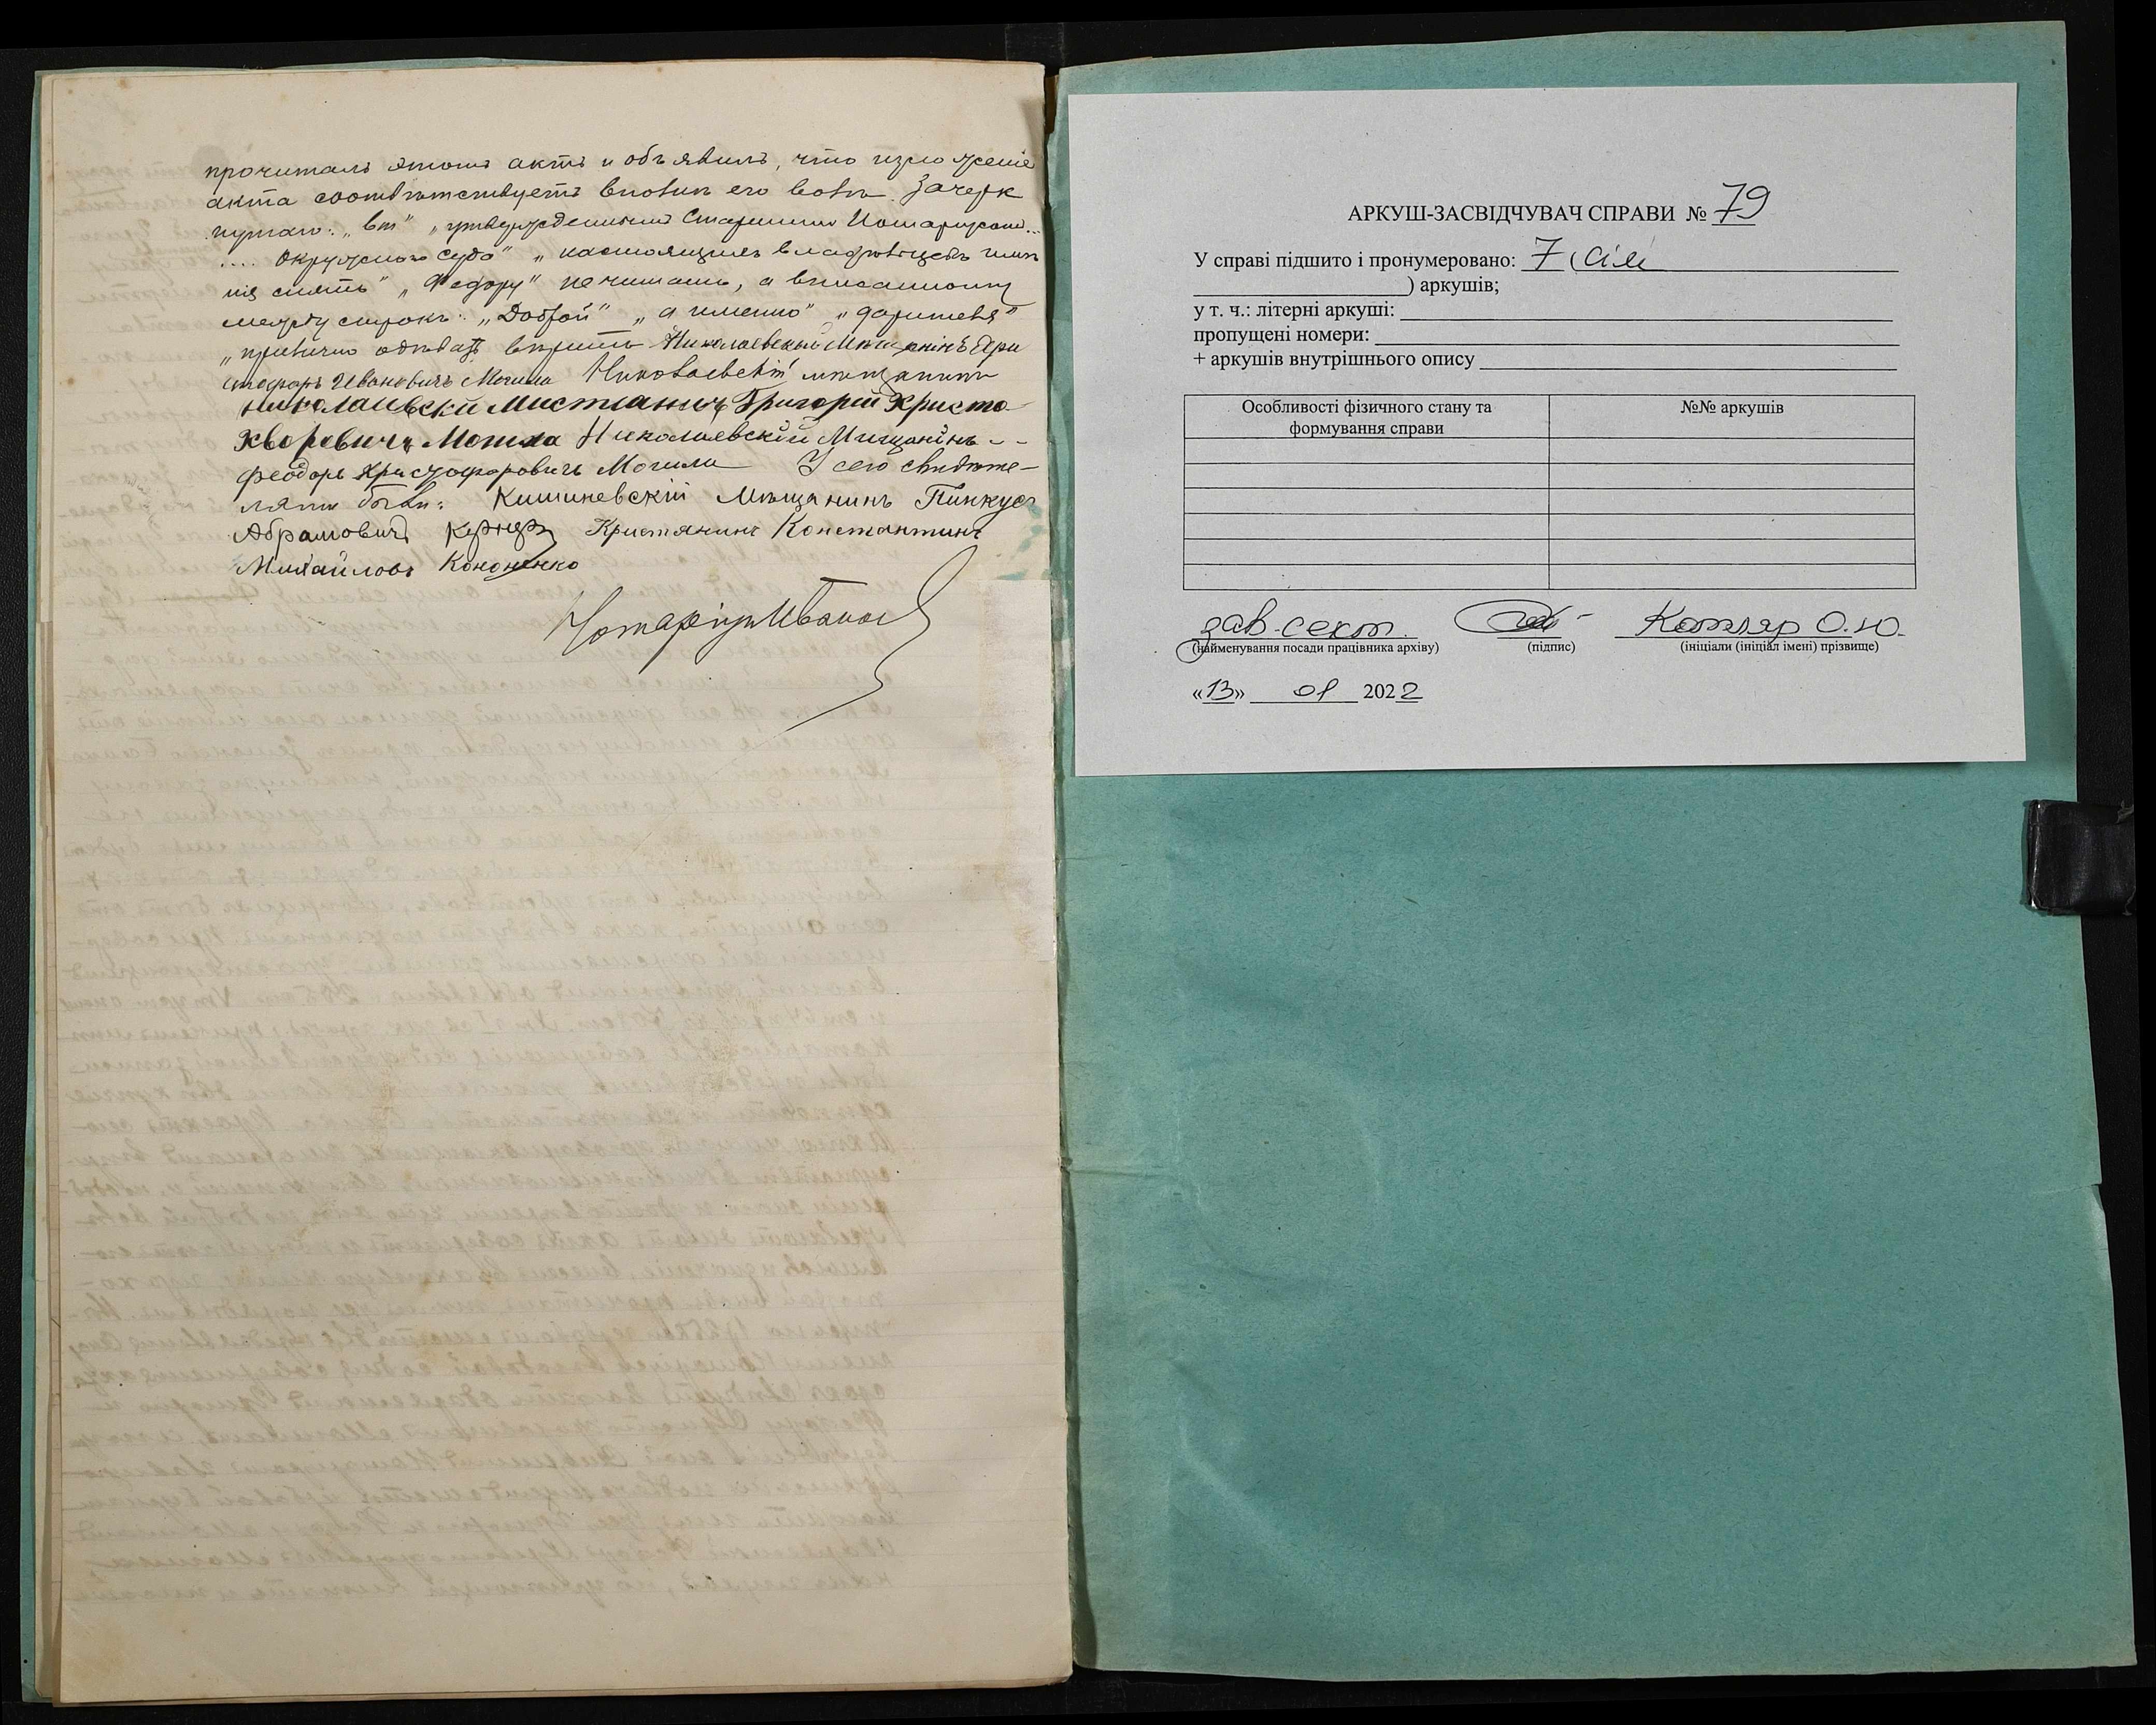 прочиталъ этотъ актъ и объявилъ, что изложеніе
акта соотвѣтствуетъ вполнѣ его волѣ. Зачерк
нутаго: „вт" „утвержденнымъ Старшимъ Нотаріусомъ...
.... Окружного Суда" „настоящимъ владѣльцемъ имѣ
нія снять" „Федору" не читать, а вписанному
между строкъ: „Доброй" „а именно" „дарителя"
вѣрить Николаевскій Мѣщанинъ Хри
стофоръ Ивановичъ Могила Николаевскій мѣщанинъ
Николаивски Мистчанинъ Григорій Христо
хворовичъ Могила Николаевскій Мищанінъ - -
Феодоръ Христофоровичъ Могила У сего свидѣте-
лями были: Кишиневскій Мѣщанинъ Пинкусъ
Абрамовичъ Кернеръ Кристянинъ Константинъ
Михайловъ Кононенко
Нотаріусъ Ивановъ
АРКУШ-ЗАСВІДЧУВАЧ СПРАВИ № 79
У справі підшито і пронумеровано: 7 (сім
) аркушів;
у т. ч.: літерні аркуші:
пропущені номери:
+ аркушів внутрішнього опису
Особливості фізичного стану та формування справи
№№ аркушів
зав. сект. Котляр О.Ю.
(найменування посади працівника архіву) (підпис) (ініціали (ініціал імені) прізвище)
«13» 01 2022